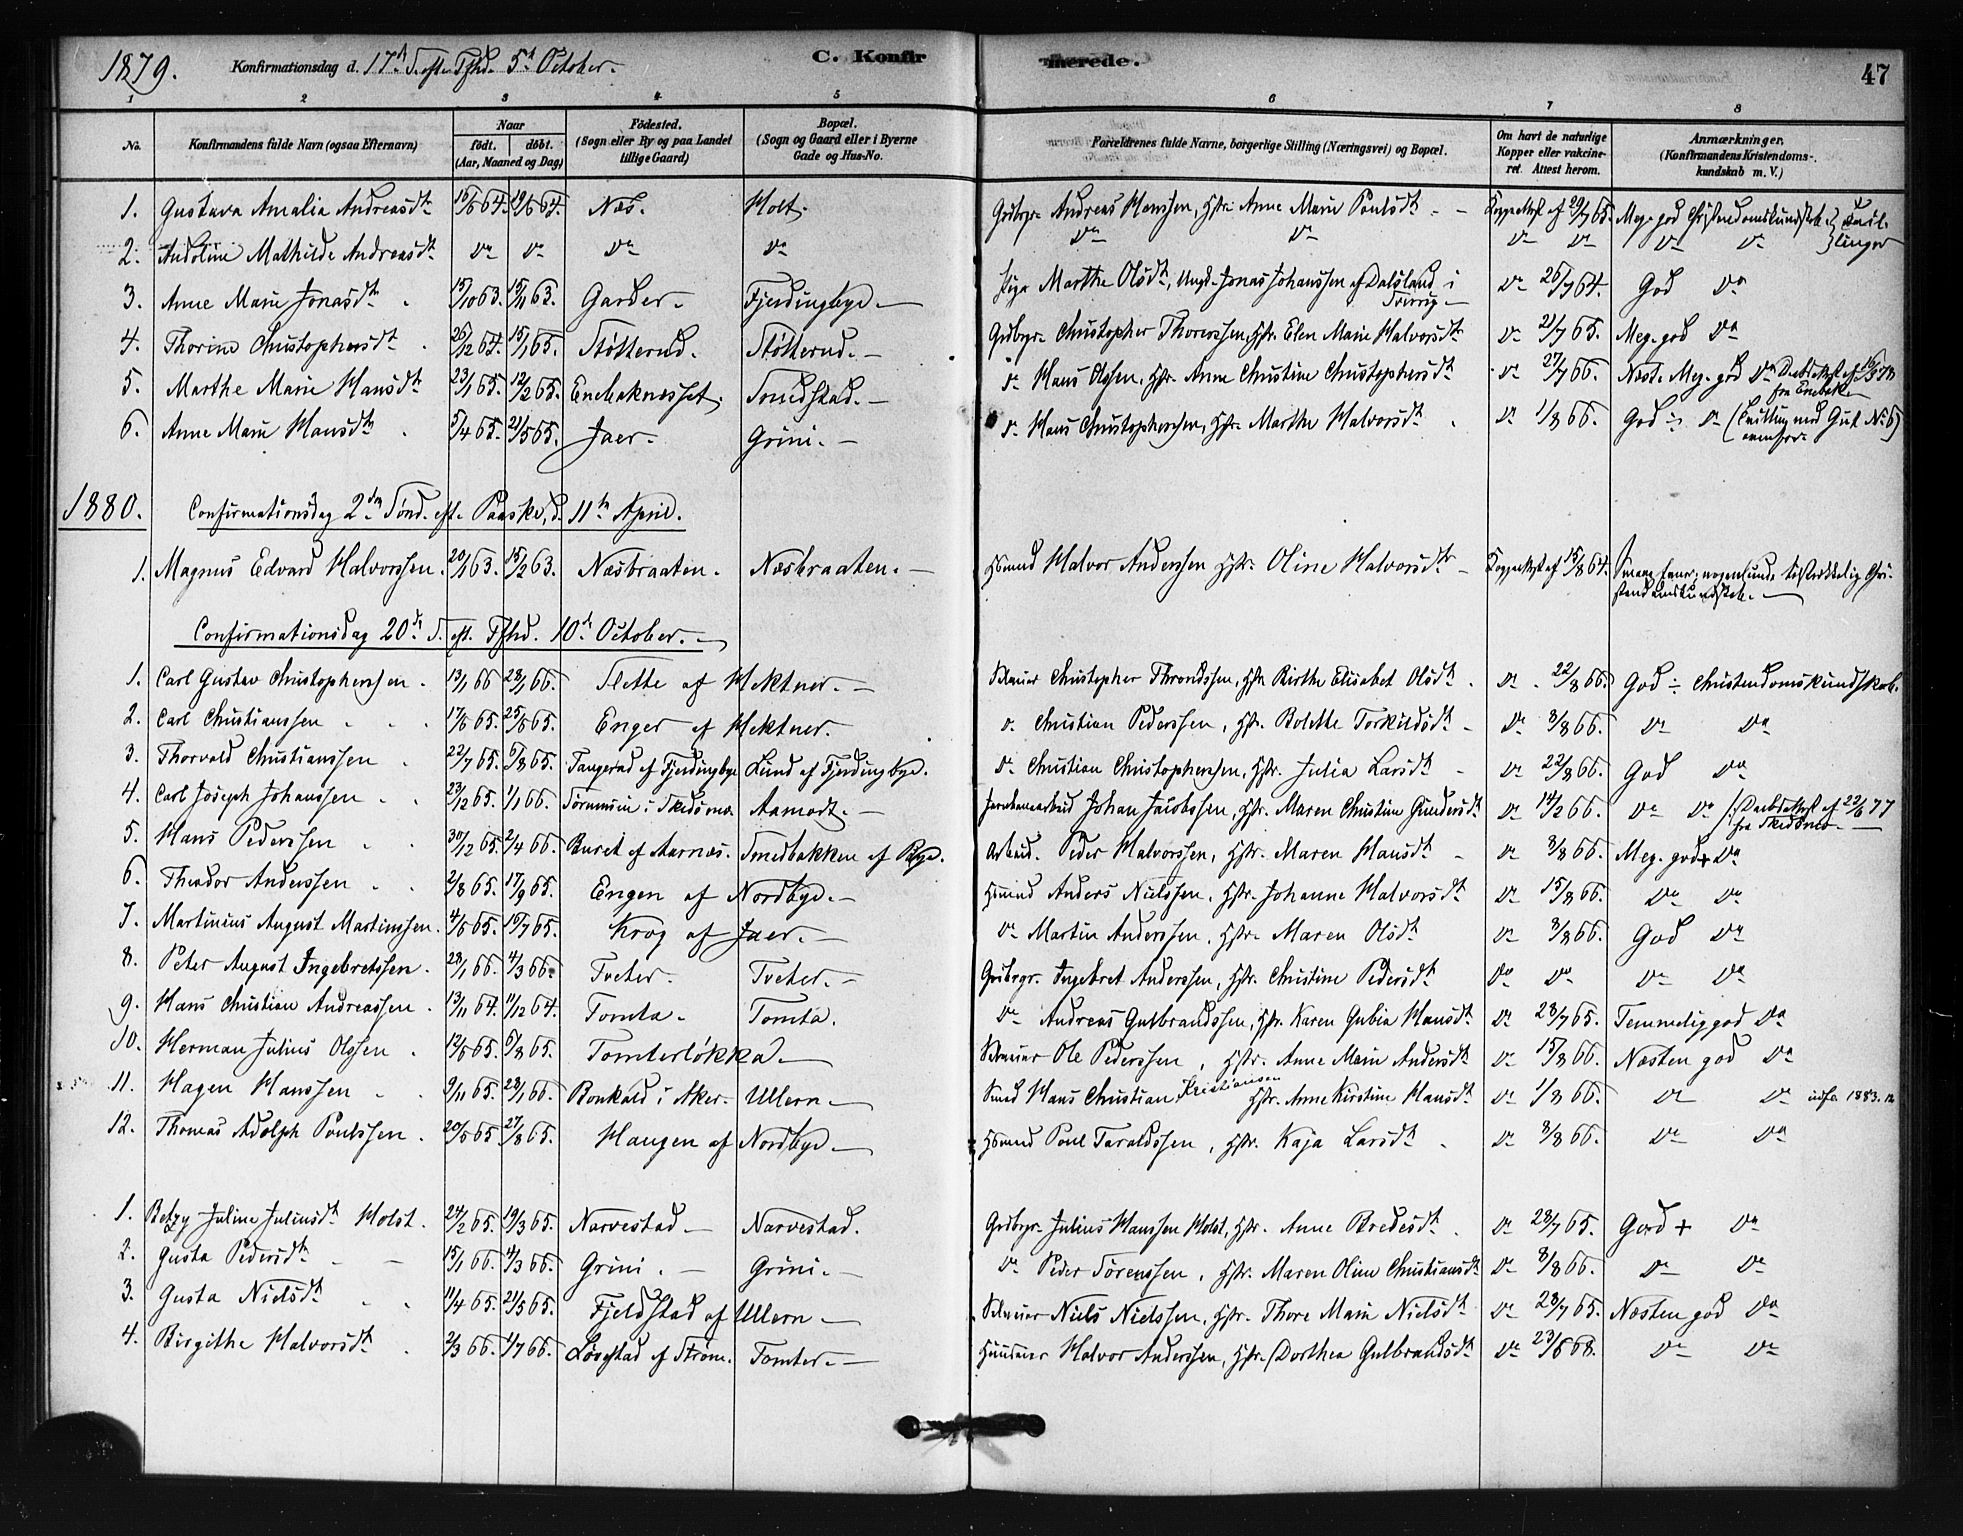 1879. Konfirmationsdag d. 17d S. eft. Tfhd. 5t October. C. Konfirmerede. 47
1 2 3 4 5 6 7 8
No. Konfirmandens fulde Navn (ogsaa Efternavn) Naar født. døbt. (Aar, Maaned og Dag) Fødested. (Sogn eller By og paa Landet tillige Gaard) Bopæl. (Sogn og Gaard eller i Byerne Gade og Hus-No. Forældrenes fulde Navne, borgerlige Stilling (Næringsvei) og Bopæl. Om havt de naturlige Kopper eller vakcineret. Attest herom. Anmærkninger. (Konfirmandens Kristendomskundskab m. V.)
1. Gustava Amalia Andreasdt 64. 64. Næs. Holt. Grdbrgr. Andreas Hanssen, Hstr. Anne Marie Poulsdt Koppeattest af 29/7 65. Meg. god Christendomskundskab. } Tvil-
2. Andoline Mathilde Andreasdt do do do do do do do do do do } linger
3. Anne Marie Jonasdt 15/10 63. 15/11 63. Garder. Fjerdingbye. Pige Marthe Olsdt, Ungk. Jonas Johanssen af Dalsland i do 26/7 64. God do
4. Thorine Christophersdt 26/12 64. 15/1 65. Støtterud. Støtterud. Grdbrgr. Christopher Thorerssen, Hstr. Elen Marie Halvorsdt do 21/7 65. Meg. god do
5. Marthe Marie Hansdt 23/1 65. 12/2 65. Enebaknesset. Smedstad. do Hans Olssen, Hstr. Anne Christine Christophersdt do 27/7 66. Næst. Meg. god do Daabsattest af
fra Enebak
6. Anne Marie Hansdt 5/4 65. 21/5 65. Jaer. Grini. do Hans Christophersen, Hstr. Marthe Halvorsdt do 1/8 66. God ÷ do (Tvilling med Gut No 6)
ovenfor
1880. Confirmationsdag 2den Sønd. eft. Paaske, d. 11te April.
1. Magnus Edvard Halvorssen. 20/1 63. 15/2 63. Næsbraaten. Næsbraaten. Hsmand Halvor Anderssen Hstr. Oline Halvorsdtr Koppeattest af 15/8 64. nogenlunde tilstrækkelig Chri-
stendomskundskab.
Confirmationsdag 20de S. eft. Tfhd. 10d October.
1. Carl Gustav Christophersen. 13/1 66 28/1 66. Slette af Hektner. Selveier Christopher Throndssen, Hstr. Birthe Elisabet Olsdt do 22/8 66. God ÷ Christendomskundskab.
2. Carl Christianssen 17/6 65. 25/6 65. Enger af Hektner. do Christian Pederssen, Hstr. Bolette Torkildsdt do 3/8 66. do do
3. Thorvald Christianssen 22/7 65. 6/8 65. Tangerud af Fjerdingbye Lund af Fjerdingbye. do Christian Christophersen, Hstr. Julia Larsdt do 22/8 66. God do
4. Carl Joseph Johanssen 23/12 65. 1/1 66. i Skedsmo. Aamodt. Johan Jacobssen, Hstr. Maren Christine Gundersdt do 14/2 66. do do (Daabsattest af 22/6 77
fra Skedsmo.
5. Hans Pederssen 30/12 65. 2/4 66. Buret af Aarnæs. Smedbakken af Bye. Arbeid. Peder Halvorssen, Hstr. Maren Hansdt do 3/8 66. Meg. god + do
6. Theodor Anderssen 2/8 65. 17/9 65. Engen af Nordbye. Hsmand Anders Nielssen, Hstr. Johanne Halvorsdt do 15/8 66. do do
7. Martinius August Martinssen. 4/6 65. 16/7 65. Krog af Jaer. do Martin Anderssen, Hstr. Maren Olsdt do 3/8 66. God do
8. Peter August Ingebretssen. 28/1 66. 4/3 66. Tveter. Tveter. Grdbrgr. Ingebret Anderssen, Hstr. Christine Pedersdt do do do do
9. Hans Christian Andreassen 13/11 64. 11/12 64. Tomta. Tomta. do Andreas Gulbrandssen, Hstr. Karen Gubia Hansdt do 28/7 65. Temmelig god do
10. Herman Julius Olssen 12/6 65. 6/8 65. Tomterløkka Selveier Ole Pederssen, Hstr. Anne Marie Andersdt do 15/8 66. Næsten god do
11. Hagen Hanssen 9/11 65. 28/1 66. i Aker. Ullern Smed Hans Christian Kristiansen Hstr. Anne Kirstine Hansdt do 1/8 66. do do 1883.
12. Thomas Adolph Poulssen 20/5 65 27/8 65. Haugen af Nordbye Hsmand Poul Taraldssen, Hstr. Kaja Larsdt do 3/8 66. do do
1. Betzy Juline Juliusdt Holst. 24/2 65. 19/3 65. Narvestad Narvestad. Grdbrgr. Julius Hanssen Holst, Hstr. Anne Bredesdt do 28/7 65. God + do
2. Gusta Pedersdt 15/1 66. 4/3 66. Grini. Grini. do Peder Sørenssen, Hstr. Maren Oline Christiansdt do 8/8 66. do do
3. Gusta Nielsdt 11/4 65. 21/5 65. Fjeldstad af Ullern Selveier Niels Nielssen, Hstr. Thore Marie Nielsdt do 28/7 65. Næsten god do
4. Birgithe Halvorsdt 2/3 66. 1/7 66. Løvstad af Strøm. Tomter. Halvor Anderssen, Hstr. Dorthea Gulbrandsdt do 23/6 68. do do